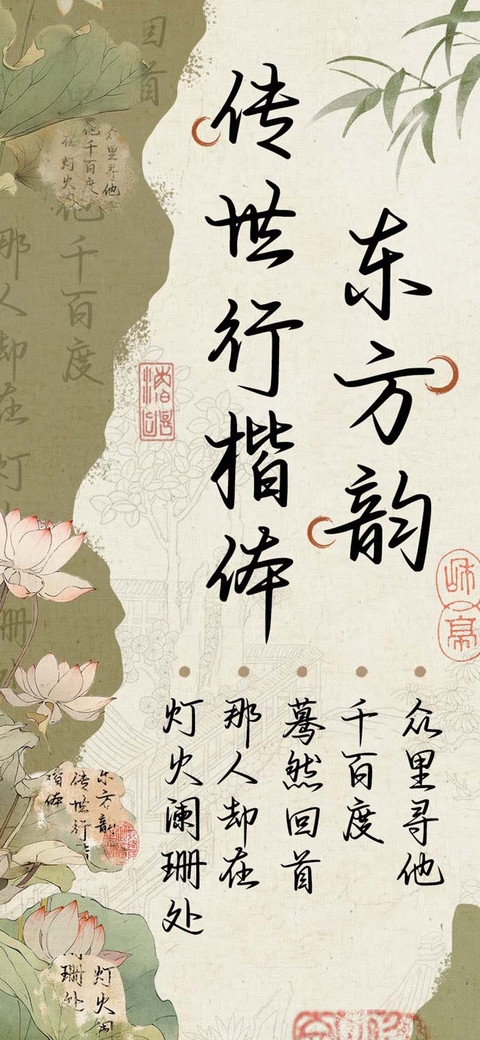 东方韵
传世行楷体
众里寻他
千百度
驀然回首
那人却在
灯火阑珊处
回首
他千百度
那人却在灯
珊
众里寻他
他千百度
在灯火
东方韵
传世行
楷体
灯火阑
珊处